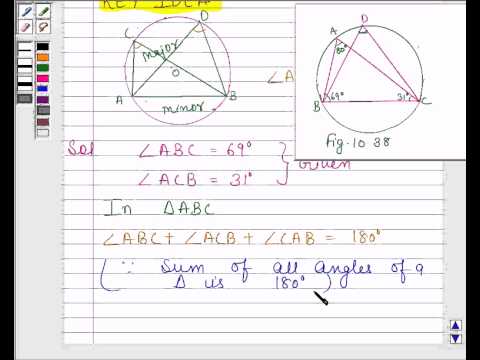 KEY IDEA
D
C
major
O
A
B
minor
∠A
D
A
80°
B
69°
31°
C
Fig-10 38
Sol
∠ABC = 69°
∠ACB = 31°
} given
In ΔABC
∠ABC + ∠ACB + ∠CAB = 180°
(∵ Sum of all angles of a
Δ is 180°)